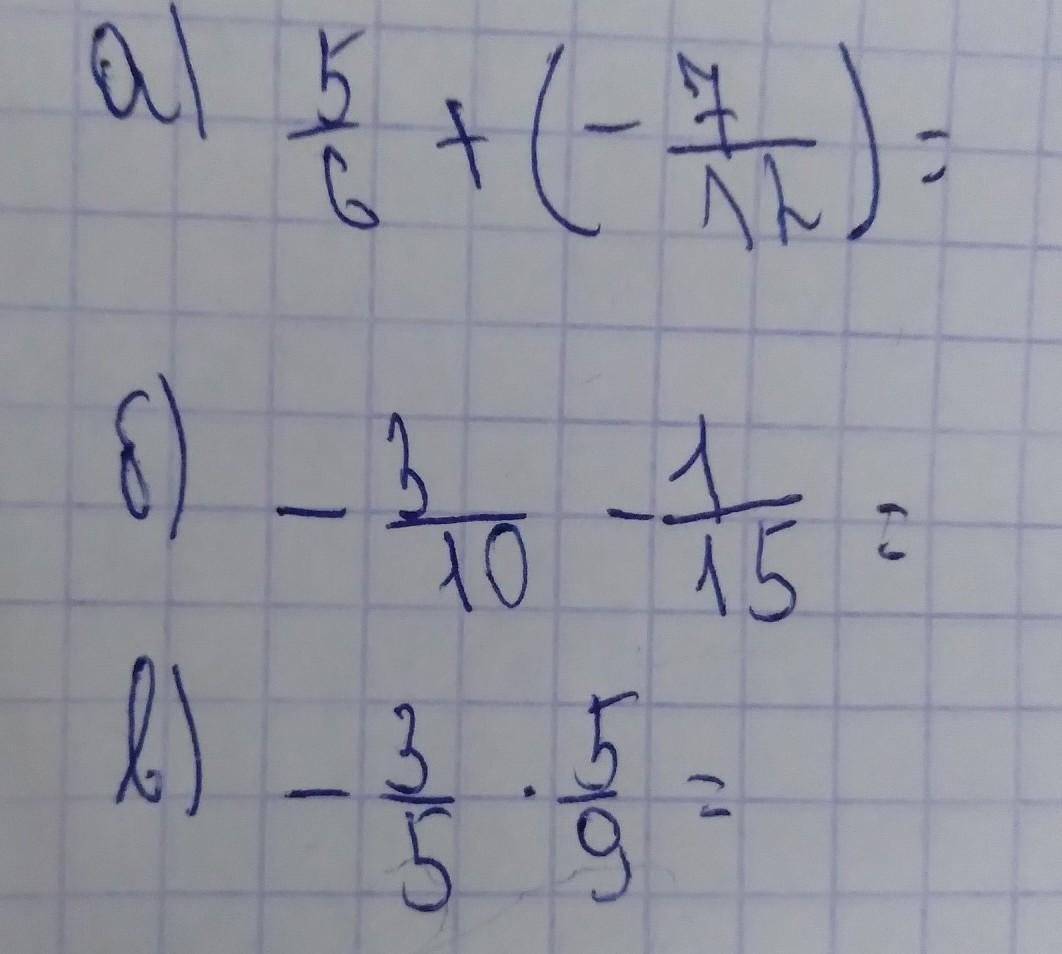 а) 5/6 + (- 7/12) =
б) - 3/10 - 1/15 =
в) - 3/5 · 5/9 =